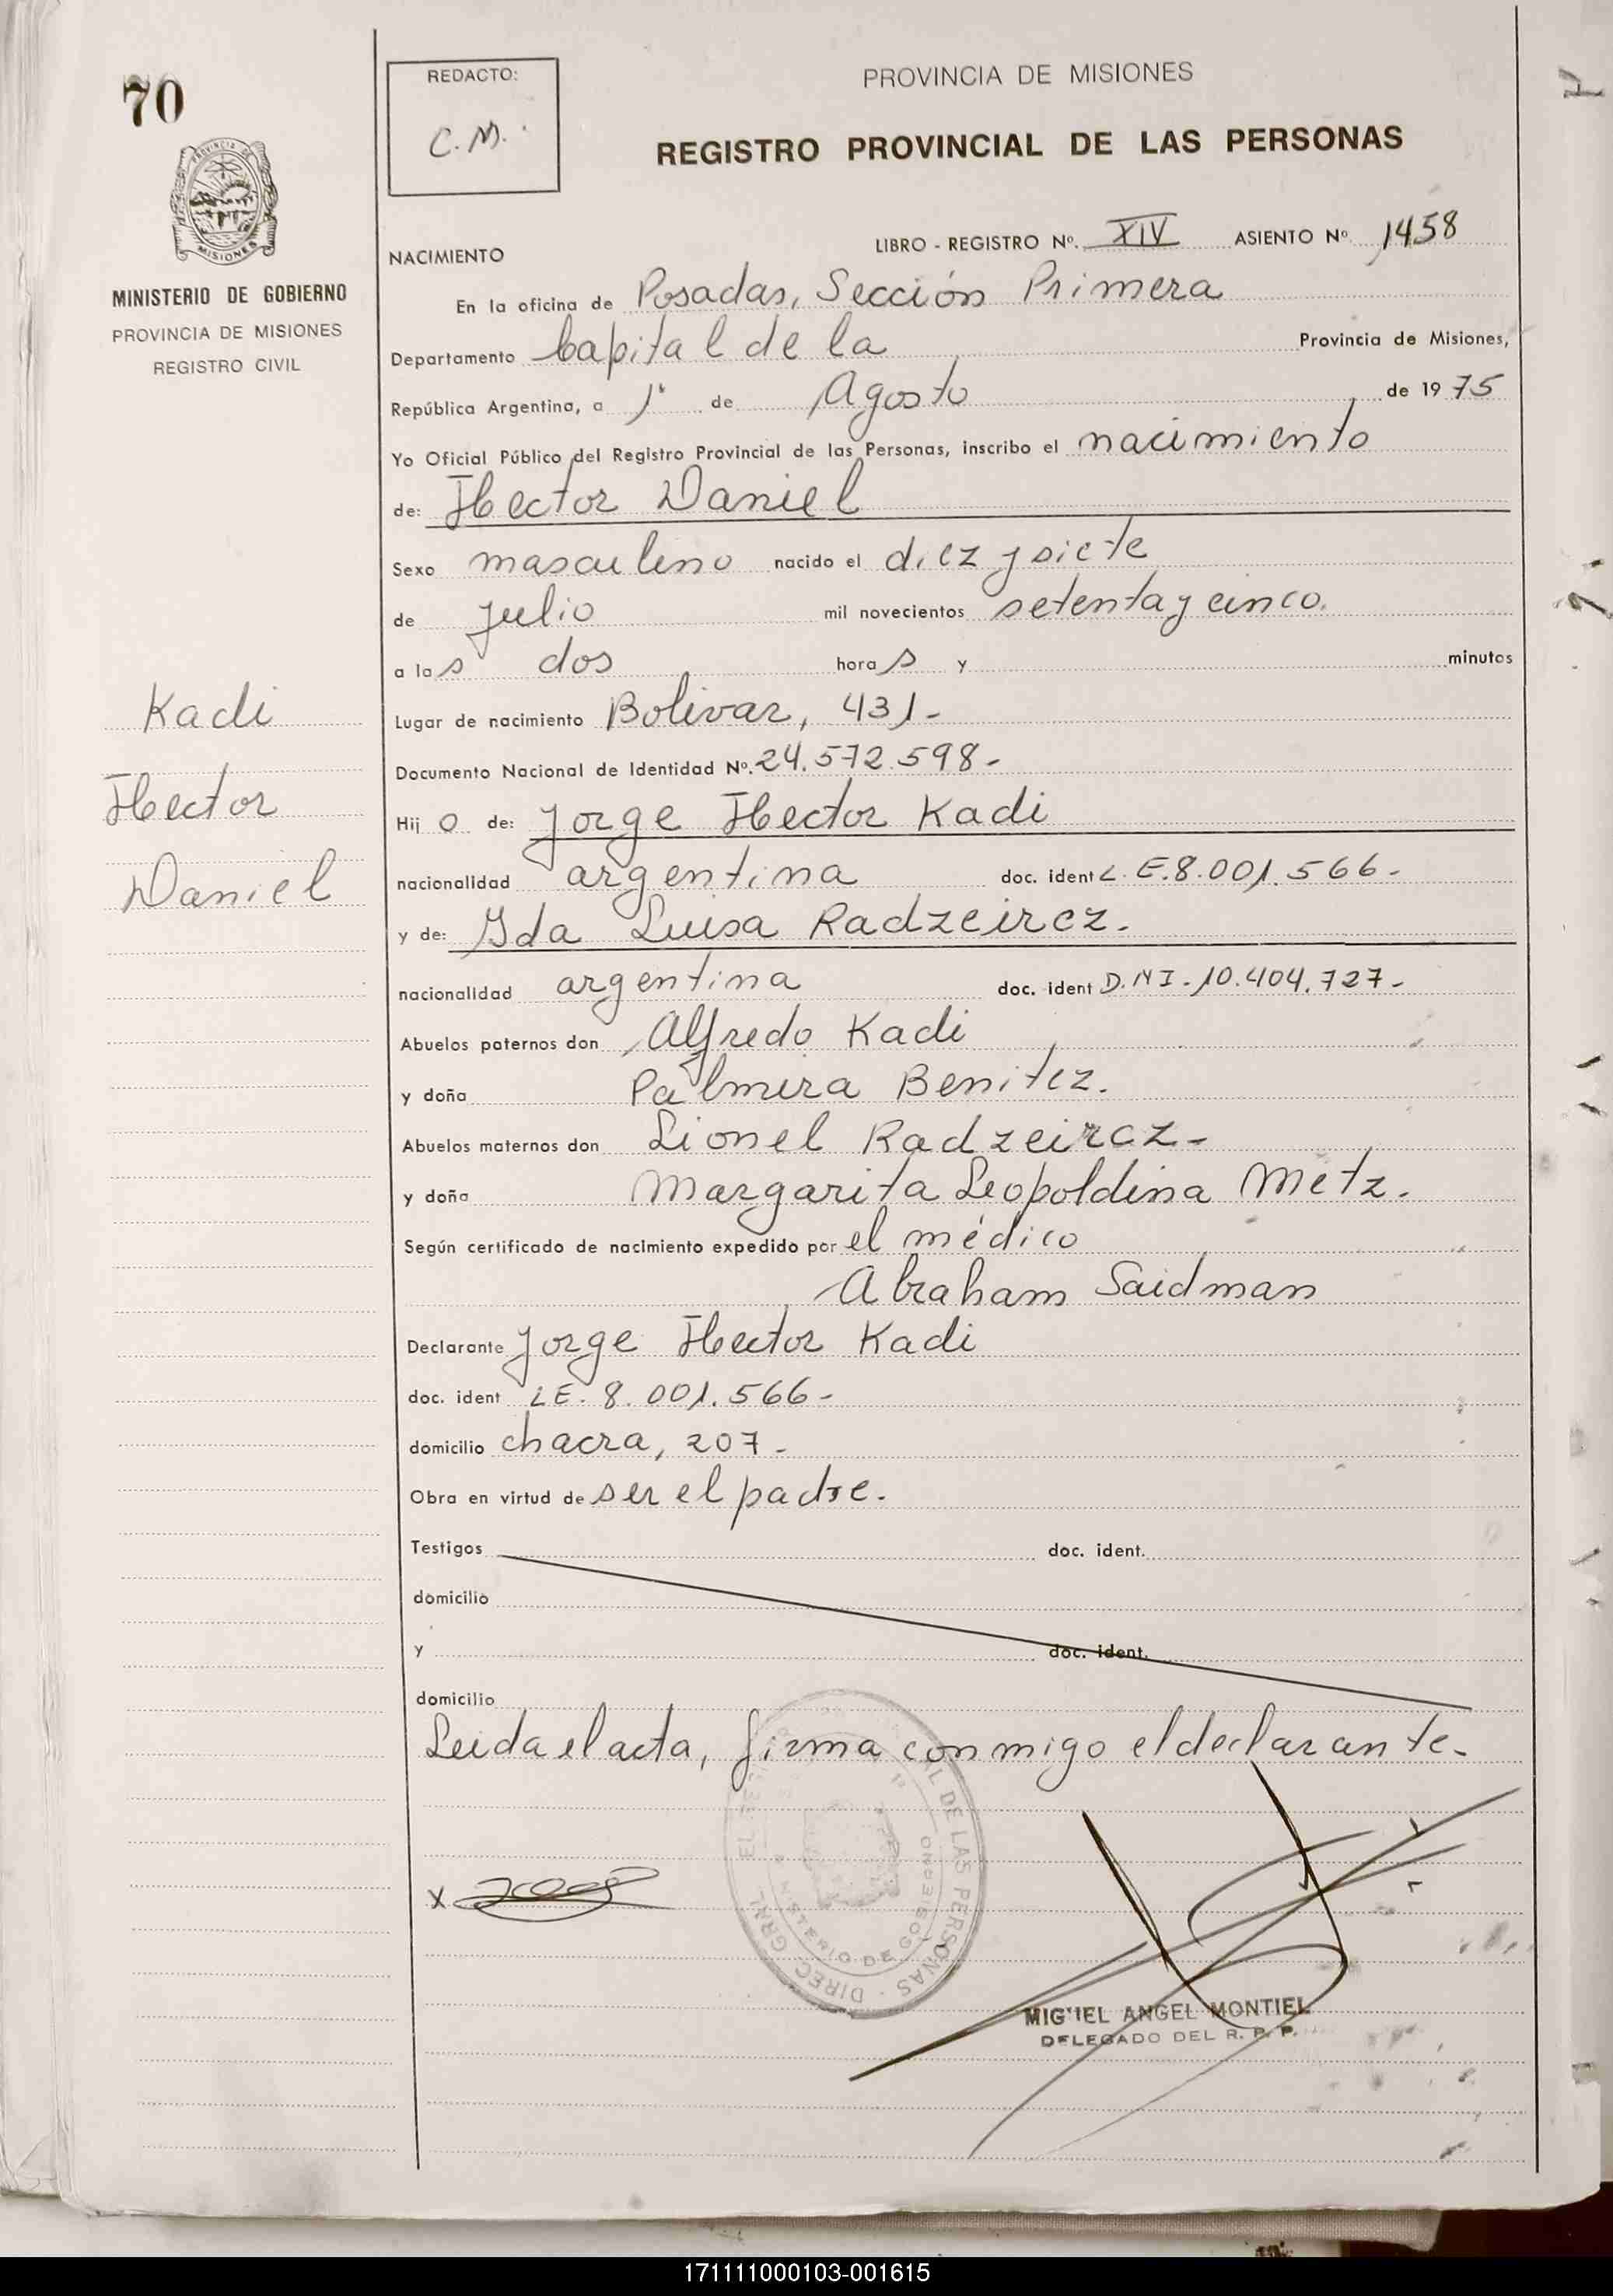 70
REDACTO:
C.M.
PROVINCIA DE MISIONES
REGISTRO PROVINCIAL DE LAS PERSONAS
PROVINCIA DE
MISIONES
MINISTERIO DE GOBIERNO
PROVINCIA DE MISIONES
REGISTRO CIVIL
LIBRO - REGISTRO Nº. XIV ASIENTO Nº. 1458
NACIMIENTO
En la oficina de Posadas, Sección Primera
Departamento Capital de la Provincia de Misiones,
República Argentina, a 1º de Agosto de 1975
Yo Oficial Público del Registro Provincial de las Personas, inscribo el nacimiento
de: Hector Daniel
Sexo masculino nacido el diez y siete
de Julio mil novecientos setenta y cinco.
a las dos horas y minutos
Lugar de nacimiento Bolivar, 431-
Documento Nacional de Identidad Nº. 24.572.598-
Hijo de: Jorge Hector Kadi
nacionalidad argentina doc. ident L.E.8.001.566-
y de: Ida Luisa Radzeircz.
nacionalidad argentina doc. ident D.NI-10.404.727-
Abuelos paternos don Alfredo Kadi
y doña Palmira Benitez.
Abuelos maternos don Lionel Radzeircz-
y doña Margarita Leopoldina Metz.
Según certificado de nacimiento expedido por el médico
Abraham Saidman
Declarante Jorge Hector Kadi
doc. ident LE-8.001.566-
domicilio chacra, 207-
Obra en virtud de ser el padre.
Testigos doc. ident.
domicilio
y doc. ident.
domicilio
Leida el acta, firma conmigo el declarante-
Kadi
Hector
Daniel
X
DIREC GRNL DEL REGISTRO PROVINCIAL DE LAS PERSONAS
MINISTERIO DE GOBIERNO
MIGUEL ANGEL MONTIEL
DELEGADO DEL R. P. P.
171111000103-001615